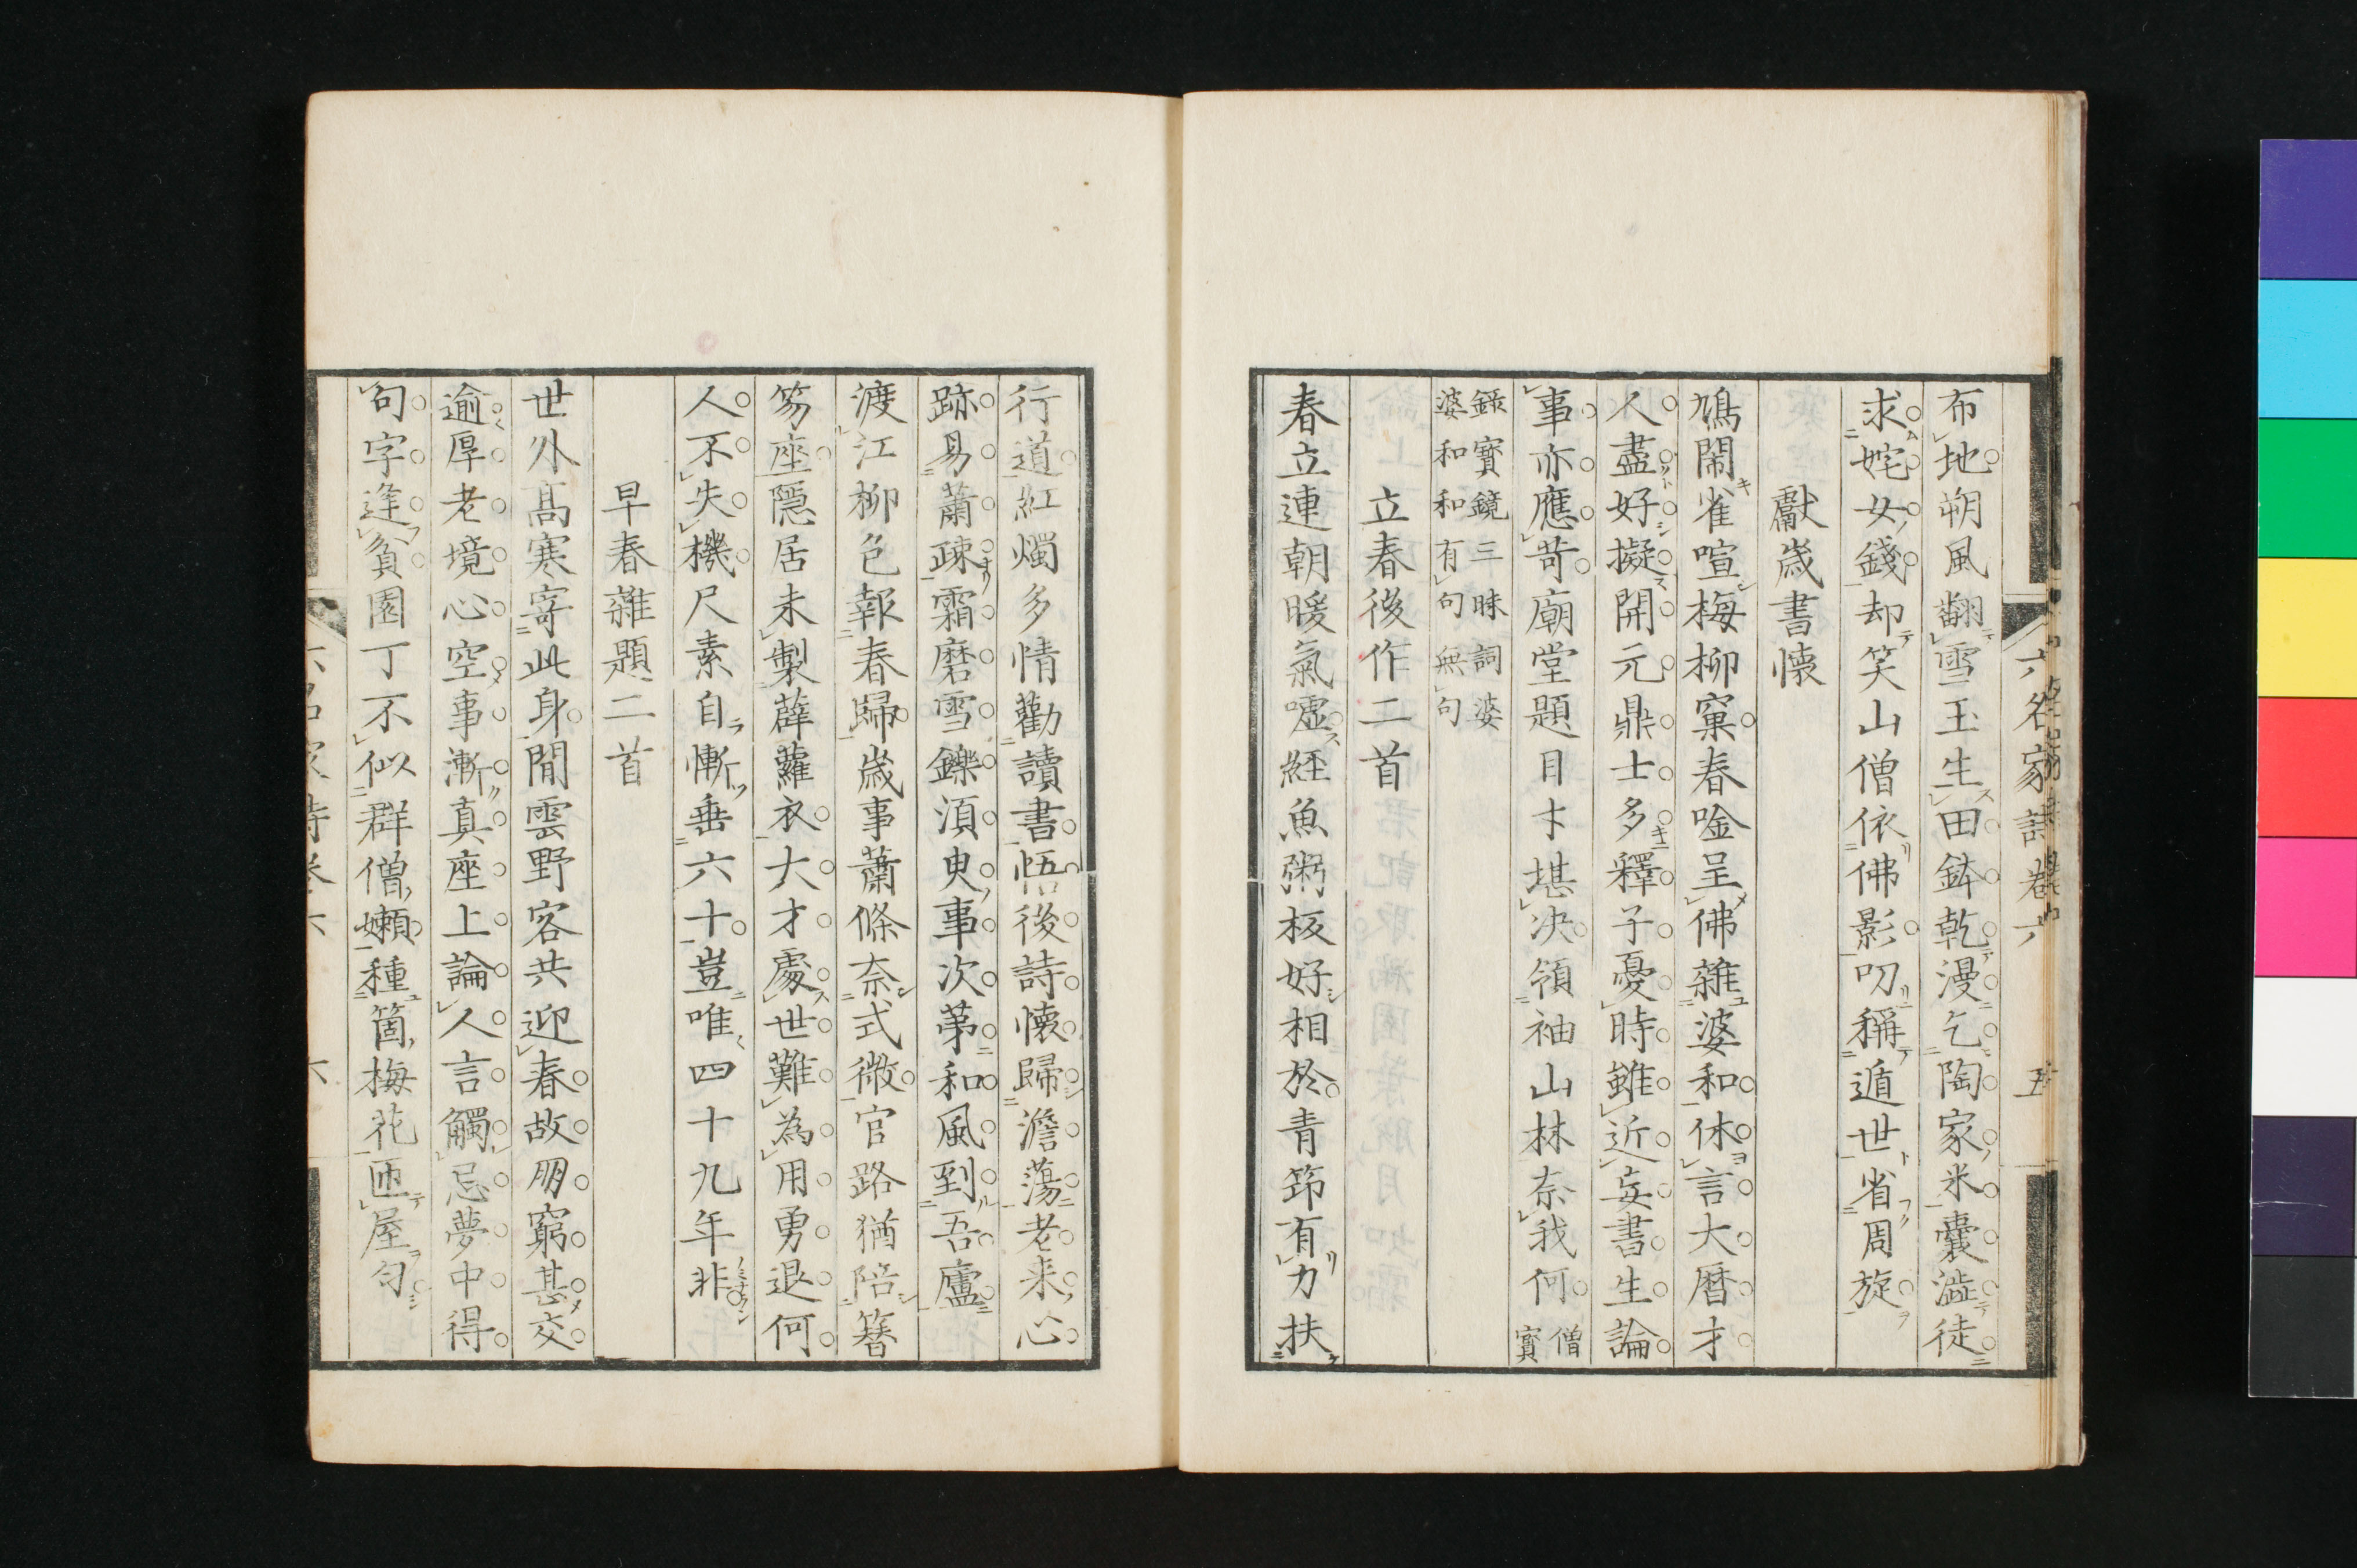 六名家詩卷六 五
布地朔風翻雪玉生田鉢乾漫乞陶家米囊澁徒
求姹女錢却笑山僧依佛影叨稱遁世省周旋
獻歲書懷
鳩閙雀喧梅柳窠春唫呈佛雜婆和休言大曆才
人盡好擬開元鼎士多釋子憂時雖近妄書生論
事亦應苛廟堂題目才堪决領袖山林奈我何 僧寳
錄寳鏡三昧詞婆
婆和和有句無句
立春後作二首
春立連朝暖氣嘘經魚粥板好相於青筇有力扶
行道紅燭多情勸讀書悟後詩懷歸澹蕩老来心
跡易蕭疎霜磨雪鑠湏臾事次苐和風到吾廬
渡江柳色報春歸歲事蕭條奈式微官路猶陪簪
笏座隱居未製薜蘿衣大才處世難為用勇退何
人不失機尺素自慚垂六十豈唯四十九年非
早春雜題二首
世外高寒寄此身閒雲野客共迎春故朋窮甚交
逾厚老境心空事漸真座上論人言觸忌夢中得
句字逢貧園丁不似群僧嬾種箇梅花匝屋勻
六名家詩卷六 六